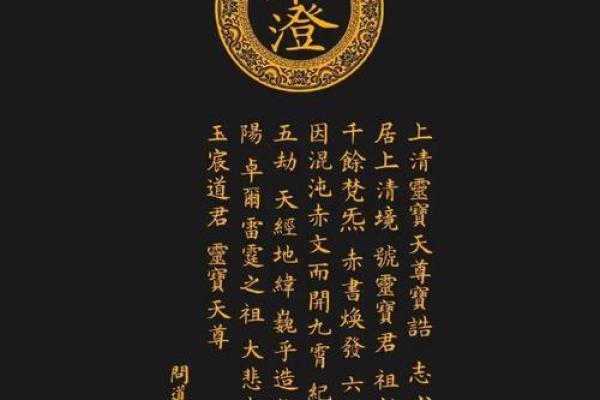 澄
上清靈寶天尊寶誥 志
居上清境 號靈寶君 祖
千餘梵炁 赤書煥發 六
因混沌赤文而開九霄 紀
五劫 天經地緯 巍乎造
陽 卓爾雷霆之祖 大悲
玉宸道君 靈寶天尊
問道